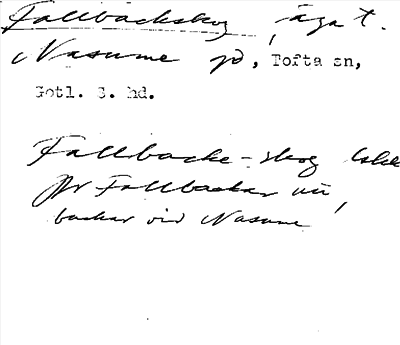 Fallbackskog, äga t.
Nasume gd, Tofta sn,
Gotl. S. hd.
Fallbacke-skog
Fallbackar
backar vid Nasume